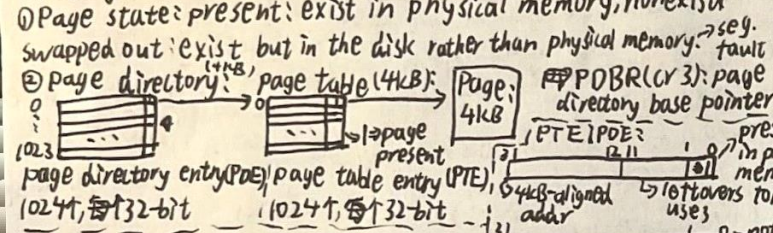 ①Page state: present: exist in physical memory, nonexist
swapped out: exist but in the disk rather than physical memory. → seg. fault
②page directory: (4kB) page table (4kB): Page: 4kB PDBR(cr3): page directory base pointer
0
1023
0
1⇒page present
page directory entry(PDE) page table entry (PTE)
1024个, 每个32-bit 1024个, 每个32-bit
PTE/PDE:
31 12 11 1 0
4kB-aligned addr
leftovers
uses
pre
in p
mem